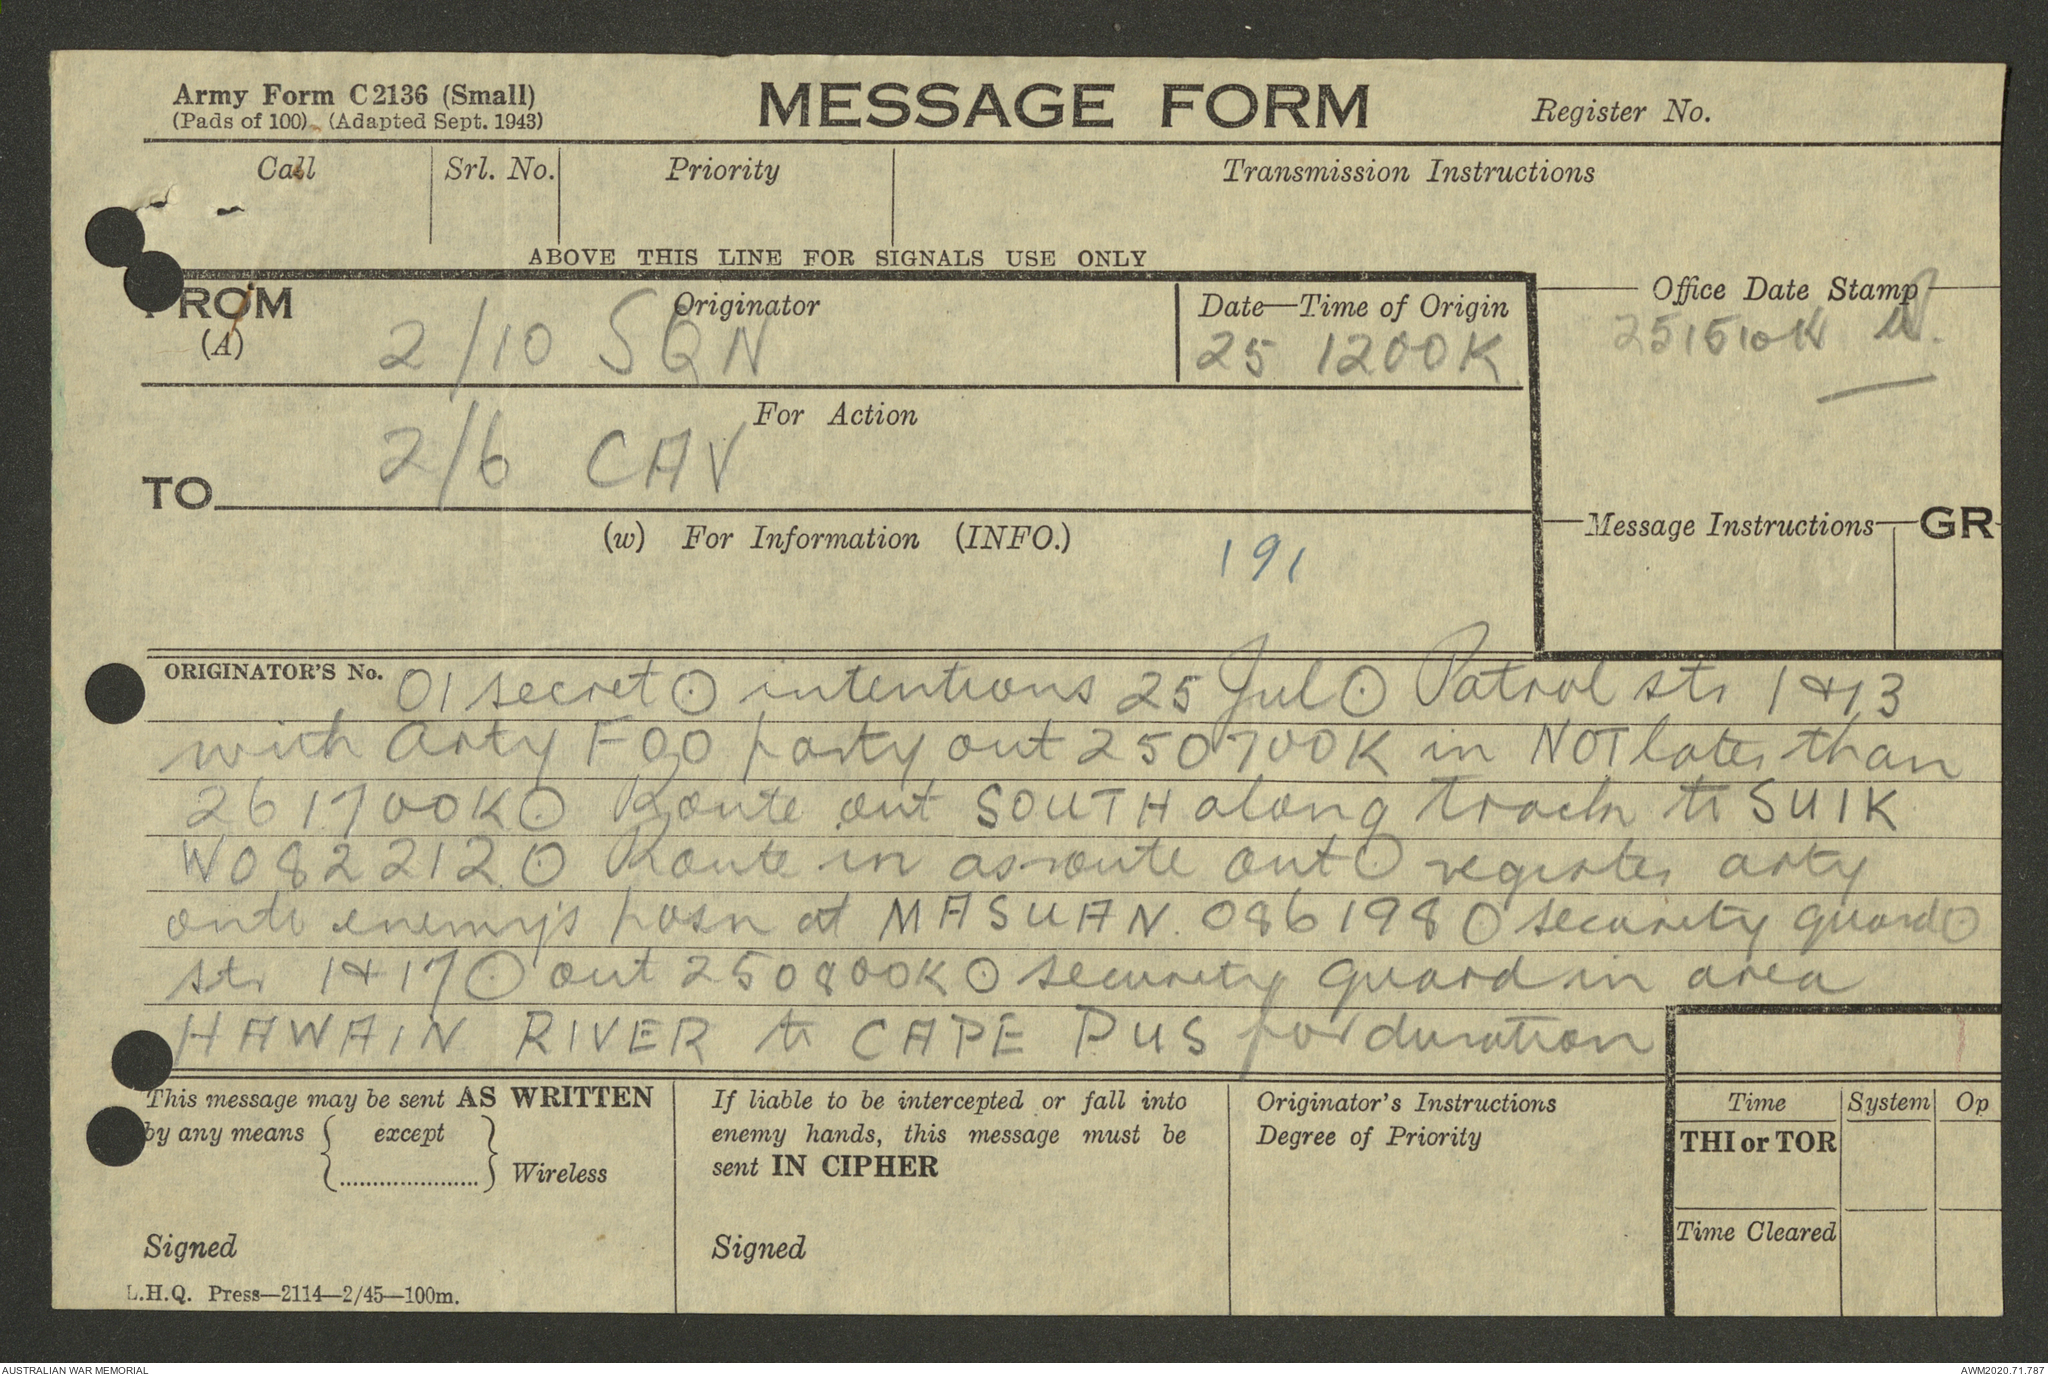 Army Form C2136 (Small)
(Pads of 100) (Adapted Sept. 1943)
MESSAGE FORM
Register No.
Call
Srl. No.
Priority
Transmission Instructions
ABOVE THIS LINE FOR SIGNALS USE ONLY
FROM
(A)
Originator
2/10 SQN
Date—Time of Origin
25 1200K
Office Date Stamp
251510K
For Action
2/6 CAV
TO
(w) For Information (INFO.)
191
Message Instructions
GR
ORIGINATOR'S No.
01 secret ⊙ intentions 25 Jul ⊙ Patrol str 1 & 13
with Arty FOO party out 250700K in NOT later than
261700K ⊙ Route out SOUTH along track to SUIK
W082212 ⊙ Route in as route out ⊙ register arty
onto enemy's posn at MASUAN 086198 ⊙ security guard ⊙
str 1 & 17 ⊙ out 250800K ⊙ security guard in area
HAWAIN RIVER to CAPE PUS for duration
This message may be sent AS WRITTEN
by any means { except ..................... } Wireless
Signed
If liable to be intercepted or fall into
enemy hands, this message must be
sent IN CIPHER
Signed
Originator's Instructions
Degree of Priority
Time
System
Op
THI or TOR
Time Cleared
L.H.Q. Press—2114—2/45—100m.
AUSTRALIAN WAR MEMORIAL
AWM2020.71.787